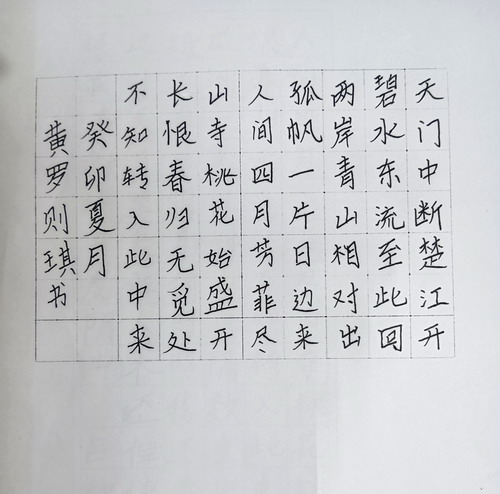 天门中断楚江开
碧水东流至此回
两岸青山相对出
孤帆一片日边来
人间四月芳菲尽
山寺桃花始盛开
长恨春归无觅处
不知转入此中来
癸卯夏月
黄罗则琪书